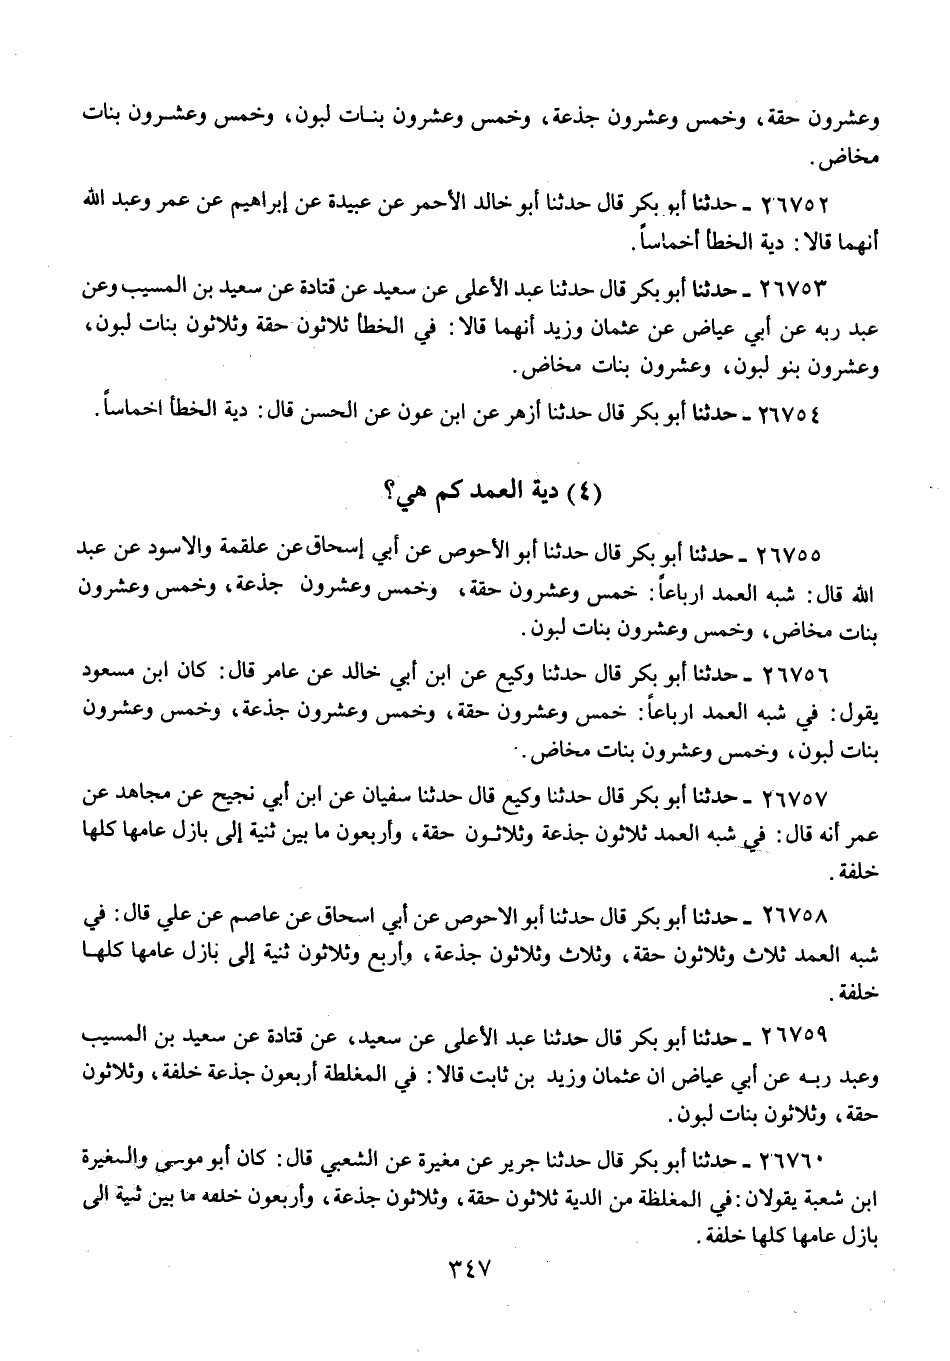 وعشرون حقة، وخمس وعشرون جذعة، وخمس وعشرون بنات لبون، وخمس وعشرون بنات
مخاض.
٢٦٧٥٢ ـ حدثنا أبو بكر قال حدثنا أبو خالد الأحمر عن عبيدة عن إبراهيم عن عمر وعبد الله
أنهما قالا: دية الخطأ أخماساً.
٢٦٧٥٣ ـ حدثنا أبو بكر قال حدثنا عبد الأعلى عن سعيد عن قتادة عن سعيد بن المسيب وعن
عبد ربه عن أبي عياض عن عثمان وزيد أنهما قالا: في الخطأ ثلاثون حقة وثلاثون بنات لبون،
وعشرون بنو لبون، وعشرون بنات مخاض.
٢٦٧٥٤ ـ حدثنا أبو بكر قال حدثنا أزهر عن ابن عون عن الحسن قال: دية الخطأ اخماساً.
(٤) دية العمد كم هي؟
٢٦٧٥٥ ـ حدثنا أبو بكر قال حدثنا أبو الأحوص عن أبي إسحاق عن علقمة والاسود عن عبد
الله قال: شبه العمد ارباعاً: خمس وعشرون حقة، وخمس وعشرون جذعة، وخمس وعشرون
بنات مخاض، وخمس وعشرون بنات لبون.
٢٦٧٥٦ ـ حدثنا أبو بكر قال حدثنا وكيع عن ابن أبي خالد عن عامر قال: كان ابن مسعود
يقول: في شبه العمد ارباعاً: خمس وعشرون حقة، وخمس وعشرون جذعة، وخمس وعشرون
بنات لبون، وخمس وعشرون بنات مخاض.
٢٦٧٥٧ ـ حدثنا أبو بكر قال حدثنا وكيع قال حدثنا سفيان عن ابن أبي نجيح عن مجاهد عن
عمر أنه قال: في شبه العمد ثلاثون جذعة وثلاثون حقة، وأربعون ما بين ثنية إلى بازل عامها كلها
خلفة.
٢٦٧٥٨ ـ حدثنا أبو بكر قال حدثنا أبو الاحوص عن أبي اسحاق عن عاصم عن علي قال: في
شبه العمد ثلاث وثلاثون حقة، وثلاث وثلاثون جذعة، وأربع وثلاثون ثنية إلى بازل عامها كلها
خلفة.
٢٦٧٥٩ ـ حدثنا أبو بكر قال حدثنا عبد الأعلى عن سعيد، عن قتادة عن سعيد بن المسيب
وعبد ربه عن أبي عياض ان عثمان وزيد بن ثابت قالا: في المغلطة أربعون جذعة خلفة، وثلاثون
حقة، وثلاثون بنات لبون.
٢٦٧٦٠ ـ حدثنا أبو بكر قال حدثنا جرير عن مغيرة عن الشعبي قال: كان أبو موسى والمغيرة
ابن شعبة يقولان: في المغلظة من الدية ثلاثون حقة، وثلاثون جذعة، وأربعون خلفه ما بين ثنية الى
بازل عامها كلها خلفة.
٣٤٧